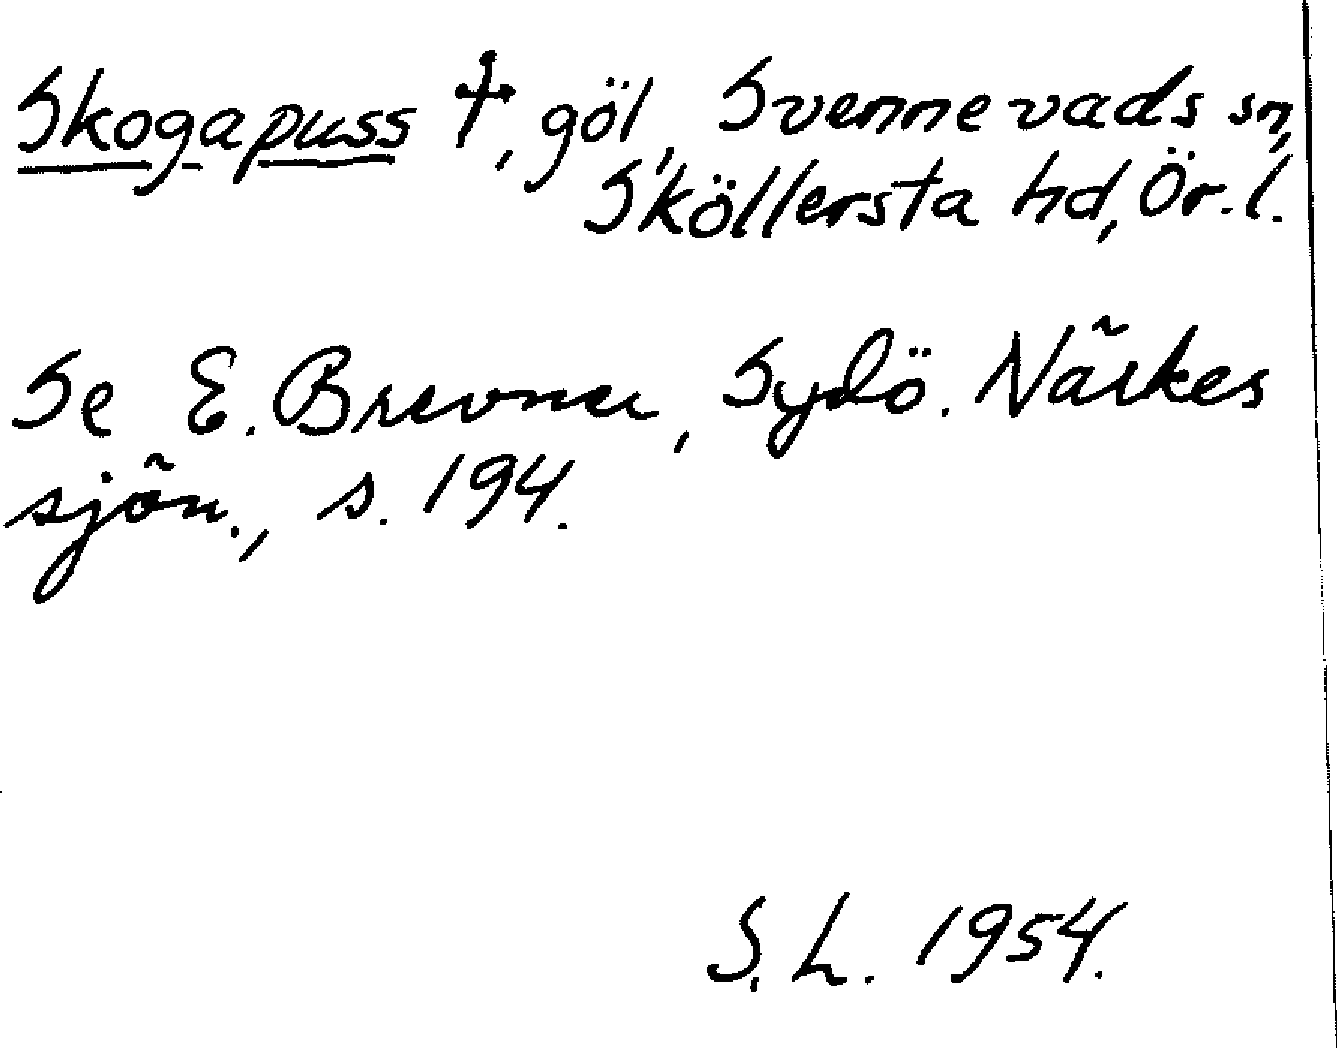 Skogapuss †, göl, Svennevads sn,
Sköllersta hd, Ör. l.
Se E. Brevner, Sydö. Närkes
sjön., s. 194.
S. L. 1954.